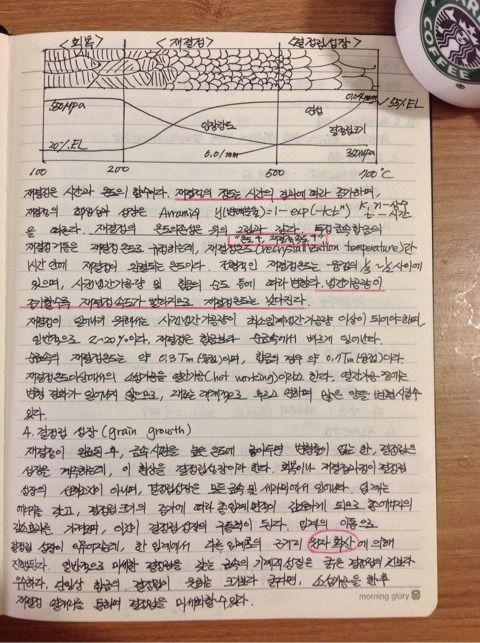 <회복> <재결정> <결정립성장>
550MPa 0.04mm 55%EL
연성
인장강도 결정립크기
20%EL 0.01mm 350MPa
100 200 500 700°C
재결정은 시간과 온도의 함수이다. 재결정의 정도는 시간의 경과에 따라 증가하며,
재결정의 성장은 Avrami식 y(변태분율)=1-exp(-kt^n) K,n-상수 t-시간
을 따른다. 재결정의 온도의존성은 위의 그림과 같다. 특정금속합금의
"온도↑, 재결정속도↑"
재결정거동은 재결정온도로 규정하는데, 재결정온도(recrystallization temperature)란
1시간 안에 재결정이 완료되는 온도이다. 전형적인 재결정온도는 융점의 ⅓~½사이에
있으며, 사전냉간가공량 및 합금의 순도 등에 따라 변한다. 냉간가공량이
증가할수록 재결정속도가 빨라지므로 재결정온도는 낮아진다.
재결정이 일어나기 위해서는 사전냉간가공량이 최소임계냉간가공량 이상이 되어야하며,
일반적으로 2~20%이다. 재결정은 합금보다 순금속에서 빠르게 일어난다.
순금속의 재결정온도는 약 0.3Tm(융점)이며, 합금의 경우 약 0.7Tm(융점)이다.
재결정온도이상에서의 소성가공을 열간가공(hot working)이라고 한다. 열간가공 중에는
변형 경화가 일어나지 않으므로, 재료는 상대적으로 무르고 연하며 많은 양을 변형시킬수
있다.
4. 결정립 성장 (grain growth)
재결정이 완료된 후, 금속시편을 높은 온도에 놓아두면 변형률이 없는 한, 결정립은
성장을 계속하는데, 이 현상을 결정립성장이라 한다. 회복이나 재결정과정이 결정립
성장의 선행조건이 아니며, 결정립성장은 모든 금속 및 세라믹에서 일어난다. 입계는
에너지를 갖고, 결정립 크기의 증가에 따라 총 입계면적이 감소하게 되므로 총에너지의
감소효과를 가져오며, 이것이 결정립 성장의 구동력이 된다. 입계의 이동으로
결정립 성장이 이루어지는데, 한 입계에서 다른 입계로의 근거리 원자 확산에 의해
진행된다. 일반적으로 미세한 결정립을 갖는 금속의 기계적성질은 굵은 결정립의 것보다
우수하다. 단일상 합금의 결정립이 원하는 크기보다 굵다면, 소성가공을 한 후
재결정 열처리를 통하여 결정립을 미세화할 수 있다.
morning glory
COFFEE